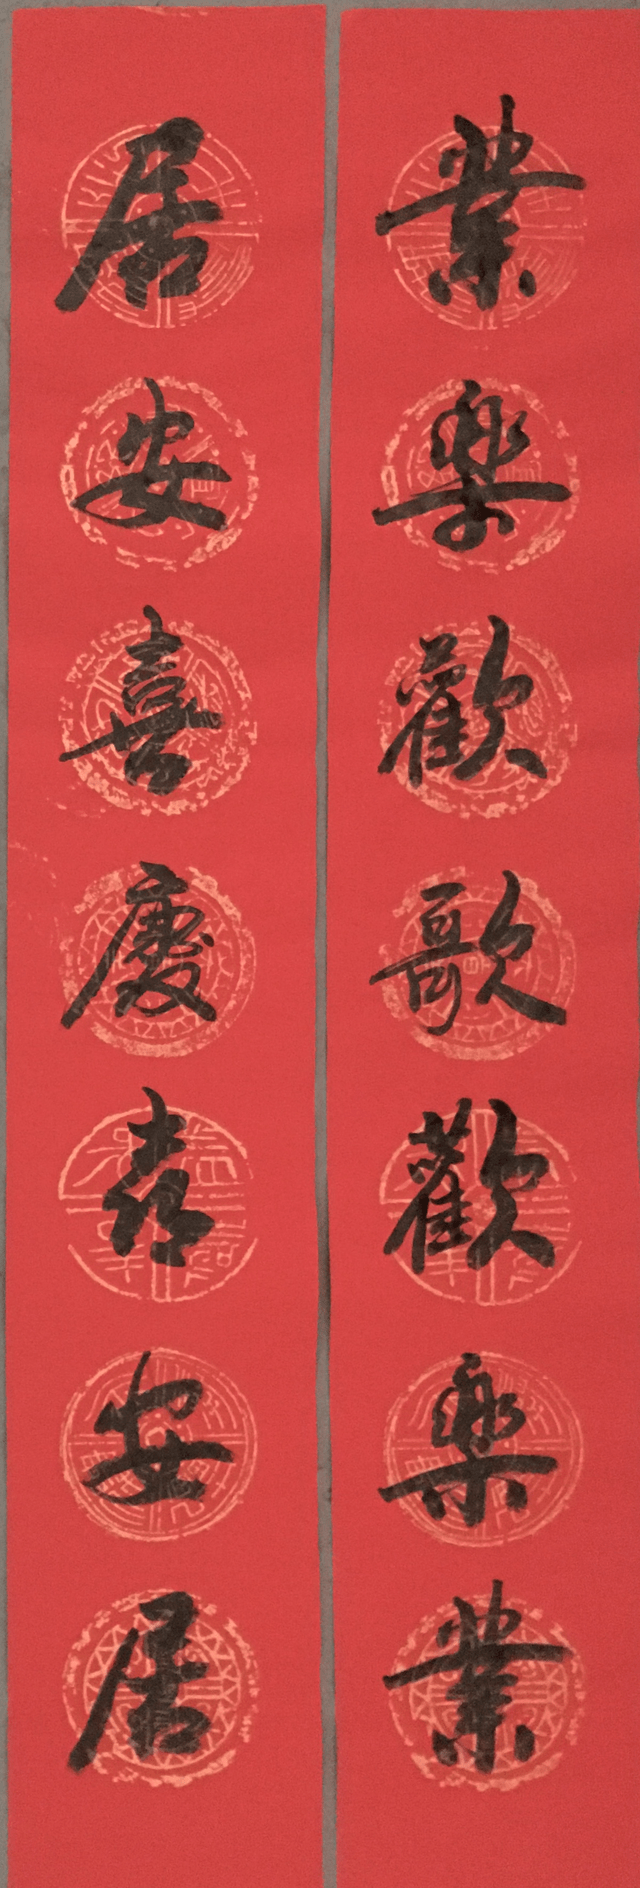 業樂歡歌歡樂業
居安喜慶喜安居